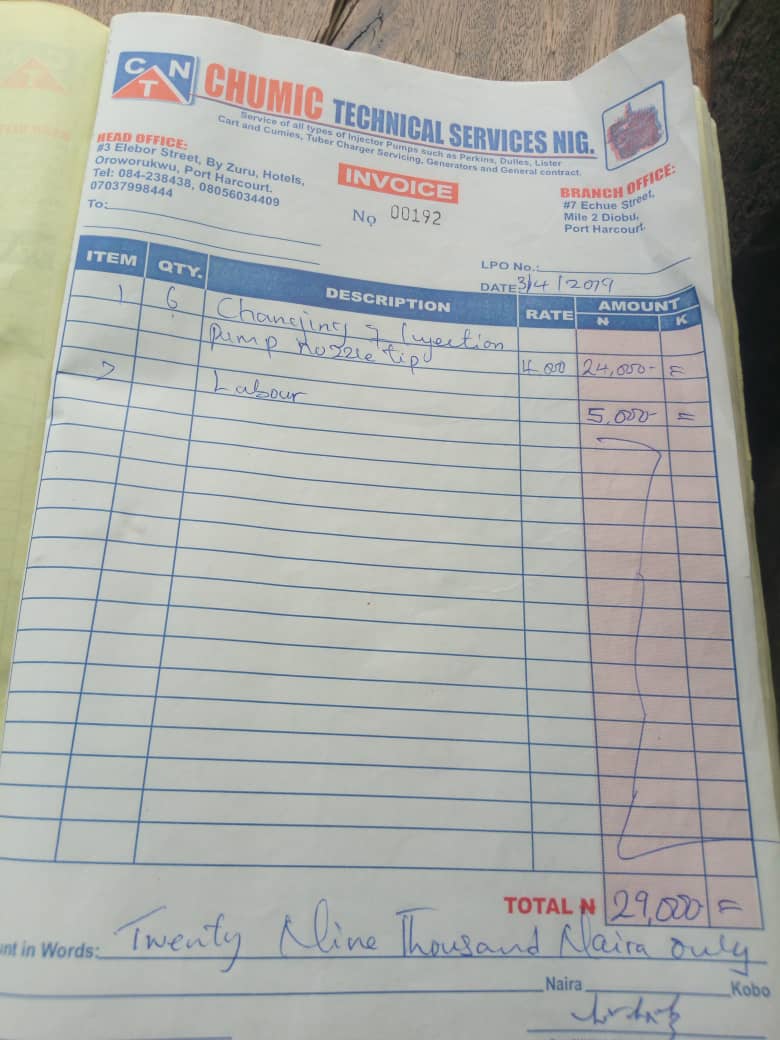 C T N
CHUMIC TECHNICAL SERVICES NIG.
Service of all types of Injector Pumps such as Perkins, Dulles, Lister
Cart and Cumies, Tuber Charger Servicing, Generators and General contract.
HEAD OFFICE:
#3 Elebor Street, By Zuru, Hotels,
Oroworukwu, Port Harcourt.
Tel: 084-238438, 08056034409
07037998444
INVOICE
Nọ 00192
BRANCH OFFICE:
#7 Echue Street,
Mile 2 Diobu,
Port Harcourt.
To:
LPO No.:
DATE 3/4/2019
ITEM QTY. DESCRIPTION RATE AMOUNT
₦ K
1 6 Changing of Injection
pump nozzle tip 4.000 24,000- =
2 Labour
5,000- =
TOTAL ₦ 29,000 =
nt in Words: Twenty Nine Thousand Naira only
Naira Kobo